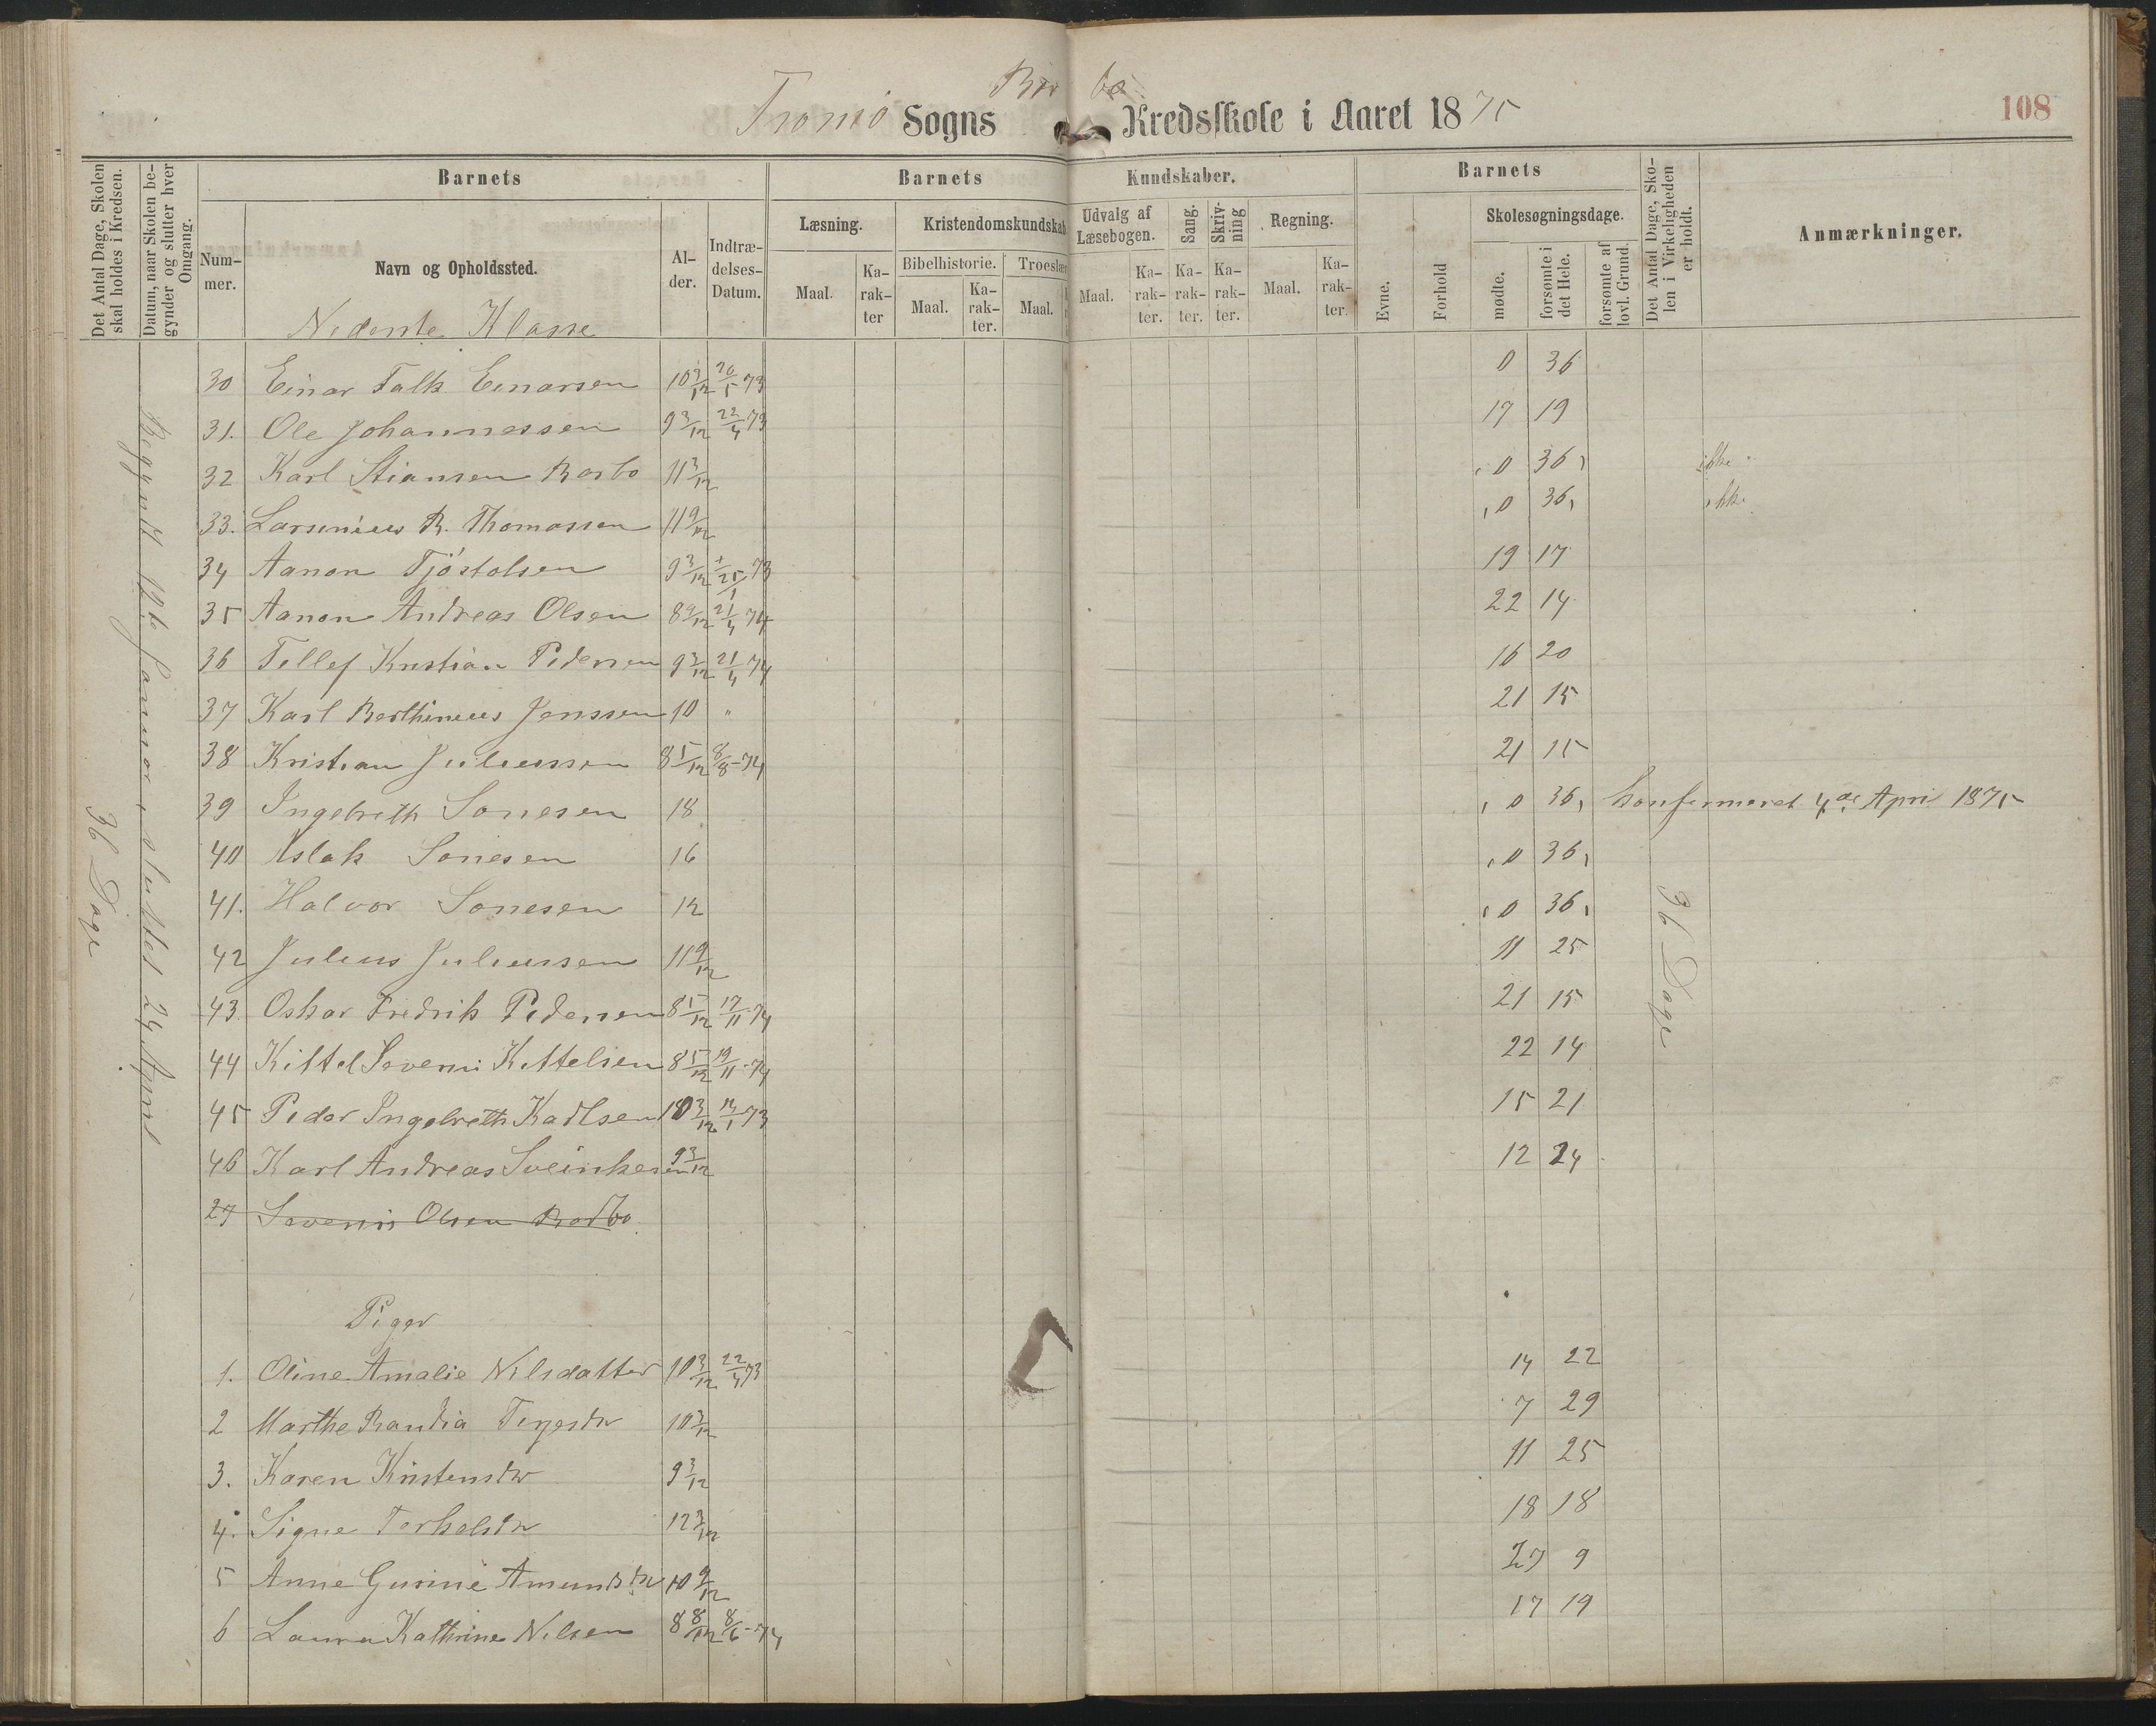 Tromö Sogns Kredsskole i Aaret 1875
108
Det Antal Dage, Skolen skal holdes i Kredsen.
Datum, naar Skolen begynder og slutter hver Omgang.
Barnets
Num-mer.
Navn og Opholdssted.
Al-der.
Indtræ-delses-Datum.
Barnets Kundskaber.
Læsning.
Maal.
Ka-rak-ter
Kristendomskundskab
Bibelhistorie.
Maal.
Ka-rak-ter.
Maal.
Udvalg af Læsebogen.
Maal.
Ka-rak-ter.
Sang.
Ka-rak-ter.
Skriv-ning
Ka-rak-ter.
Regning.
Maal.
Ka-rak-ter.
Barnets
Evne.
Forhold
Skolesøgningsdage.
mødte.
forsømte i det Hele.
forsømte af lovl. Grund.
Det Antal Dage, Sko-len i Virkeligheden er holdt.
Anmærkninger.
Nederste Klasse
36 Dage
36 Dage
30 Einar Falk Einarsen 10 3/12 20/5 73 0 36
31. Ole Johannessen 9 3/12 22/4 73 17 19
32 Karl Stiansen Barbo 11 3/12 0 36 ikke
33. Larsinius R. Thomassen 11 9/12 0 36 ikke
34 Aanon Tjöstolsen 9 3/12 73 19 17
35 Aanon Andreas Olsen 8 9/12 21/4 74 22 14
36 Tellef Kristian Pedersen 9 3/12 21/4 74 16 20
37 Karl Berthinius Jenssen 10 " 21 15
38 Kristian Juliussen 8 5/12 8/8-74 21 15
39 Ingebreth Sonesen 18 0 36 konfirmeret 4de April 1875
40 Aslak Sonesen 16 0 36
41. Halvor Sonesen 12 0 36
42 Julius Juliussen 11 9/12 11 25
43 Oskar Fredrik Pedersen 8 5/12 17/11-74 21 15
44 Kittel Severin Kittelsen 8 5/12 19/11-74 22 14
45 Peder Ingebreth Karlsen 10 3/12 13/1-73 15 21
46 Karl Andreas Sveinkesen 9 3/12 12 24
27 Severin Olsen Barbo
Piger
1. Oline Amalie Nilsdatter 10 3/12 22/4 73 14 22
2 Marthe Randia 10 3/12 7 29
3. Karen Kristensdr 9 3/12 11 25
4. Signe Torkelsdr 12 3/12 18 18
5 Anne Gurine Amundsdr 10 9/12 27 9
6 Laura Kathrine Nilsen 8 8/12 8/6-74 17 19